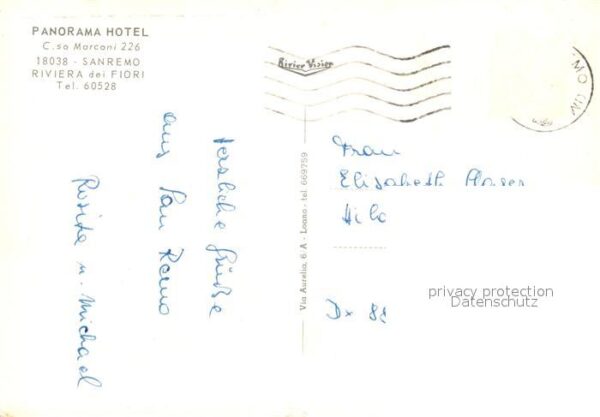 PANORAMA HOTEL
C.so Marconi 226
18038 - SANREMO
RIVIERA dei FIORI
Tel. 60528
Herzliche Grüße
aus San Remo
Rosita u. Michael
Via Aurelia, 6 A - Loano - tel. 669759
Frau
Elisabeth
privacy protection
Datenschutz